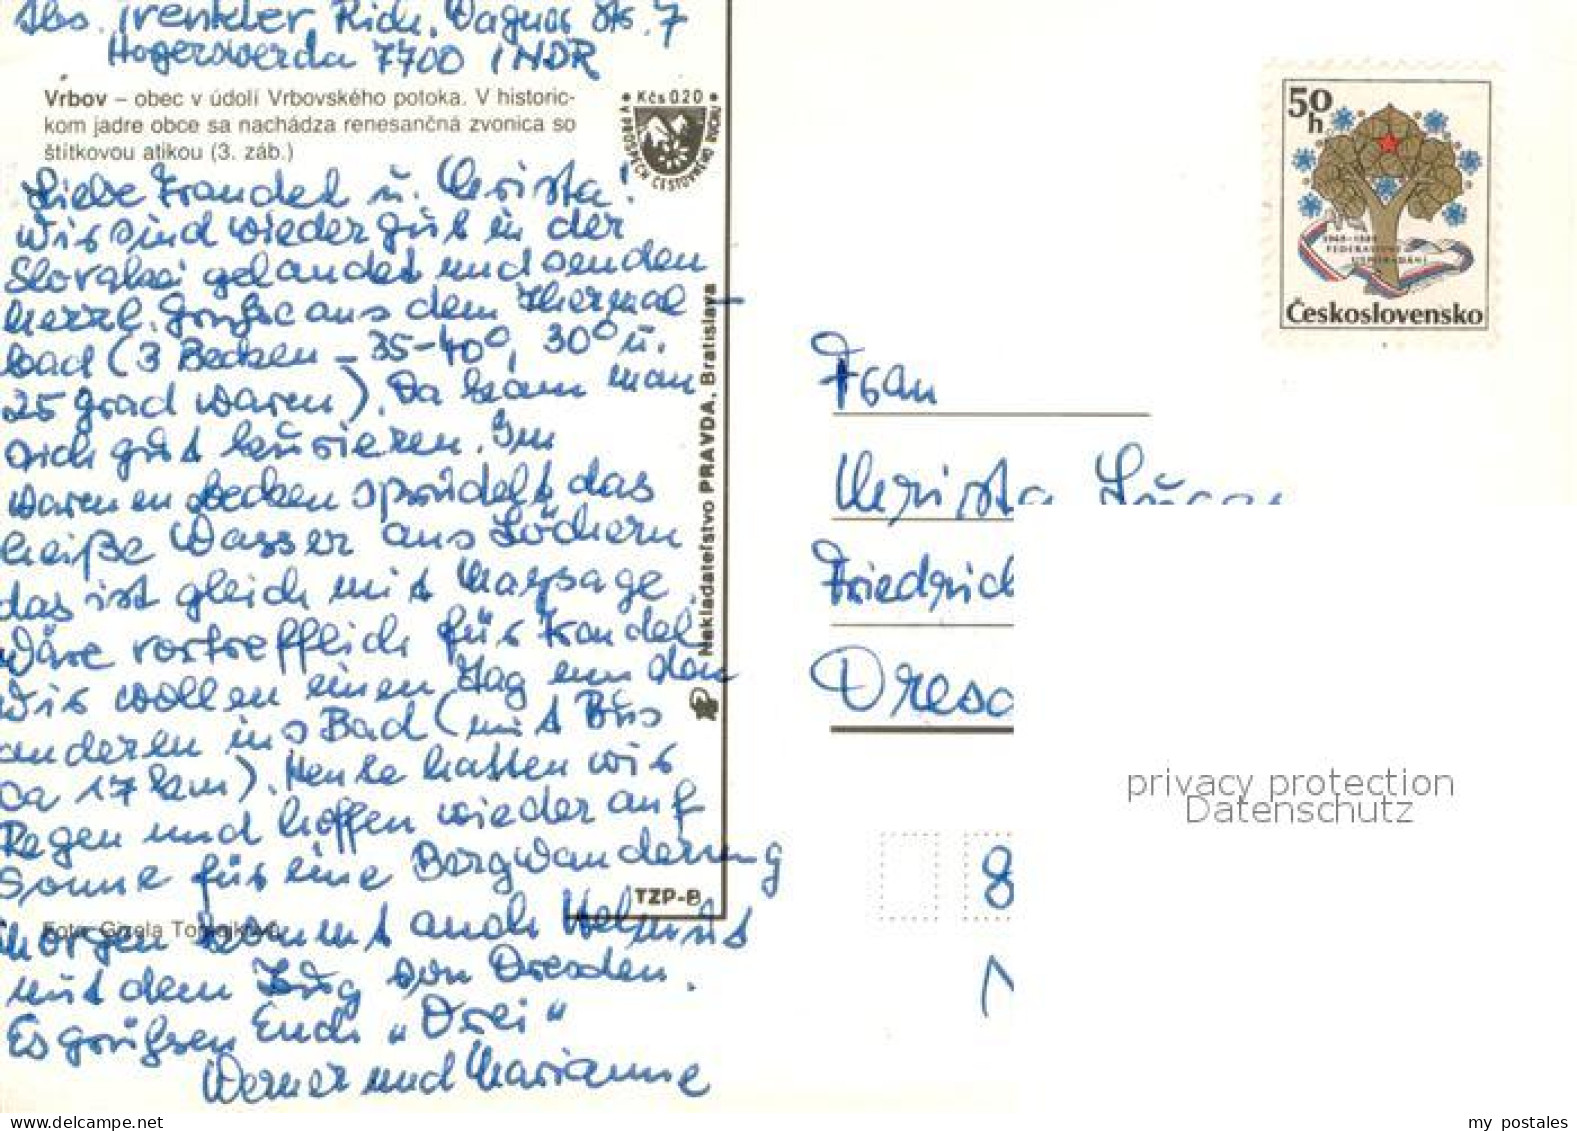 Abs. Trenkler, Rich. Wagner Str. 7
Hoyerswerda 7700 / NDR
Vrbov – obec v údolí Vrbovského potoka. V historic-
kom jadre obce sa nachádza renesančná zvonica so
štítkovou atikou (3. záb.)
Kčs 0,20
V PROSPECH CESTOVNÉHO RUCHU
Liebe Traudel u. Christa!
Wir sind wieder gut in der
Slowakei gelandet und senden
herzl. Grüße aus dem Thermal
bad (3 Becken – 35-40°, 30° u.
25 Grad waren). Da kann man
sich gut kurieren. Im
warmen Becken sprudelt das
heiße Wasser aus Löchern
das ist gleich mit Massage
Wäre vortrefflich für Traudel
Wir wollen einen Tag um den
anderen ins Bad (mit Bus
ca 17 km). Heute hatten wir
Regen und hoffen wieder auf
Sonne für eine Bergwanderung
Morgen kommt auch Helmut
mit dem Zug von Dresden.
Es grüßen Euch "Drei"
Werner und Marianne
Nakladateľstvo PRAVDA, Bratislava
TZP-B
Foto Gizela
50 h
1968–1988
FEDERATÍVNÍ
USPOŘÁDÁNÍ
Československo
Frau
Christa
Friedrich
Dresd
8
privacy protection
Datenschutz
www.delcampe.net
my_postales